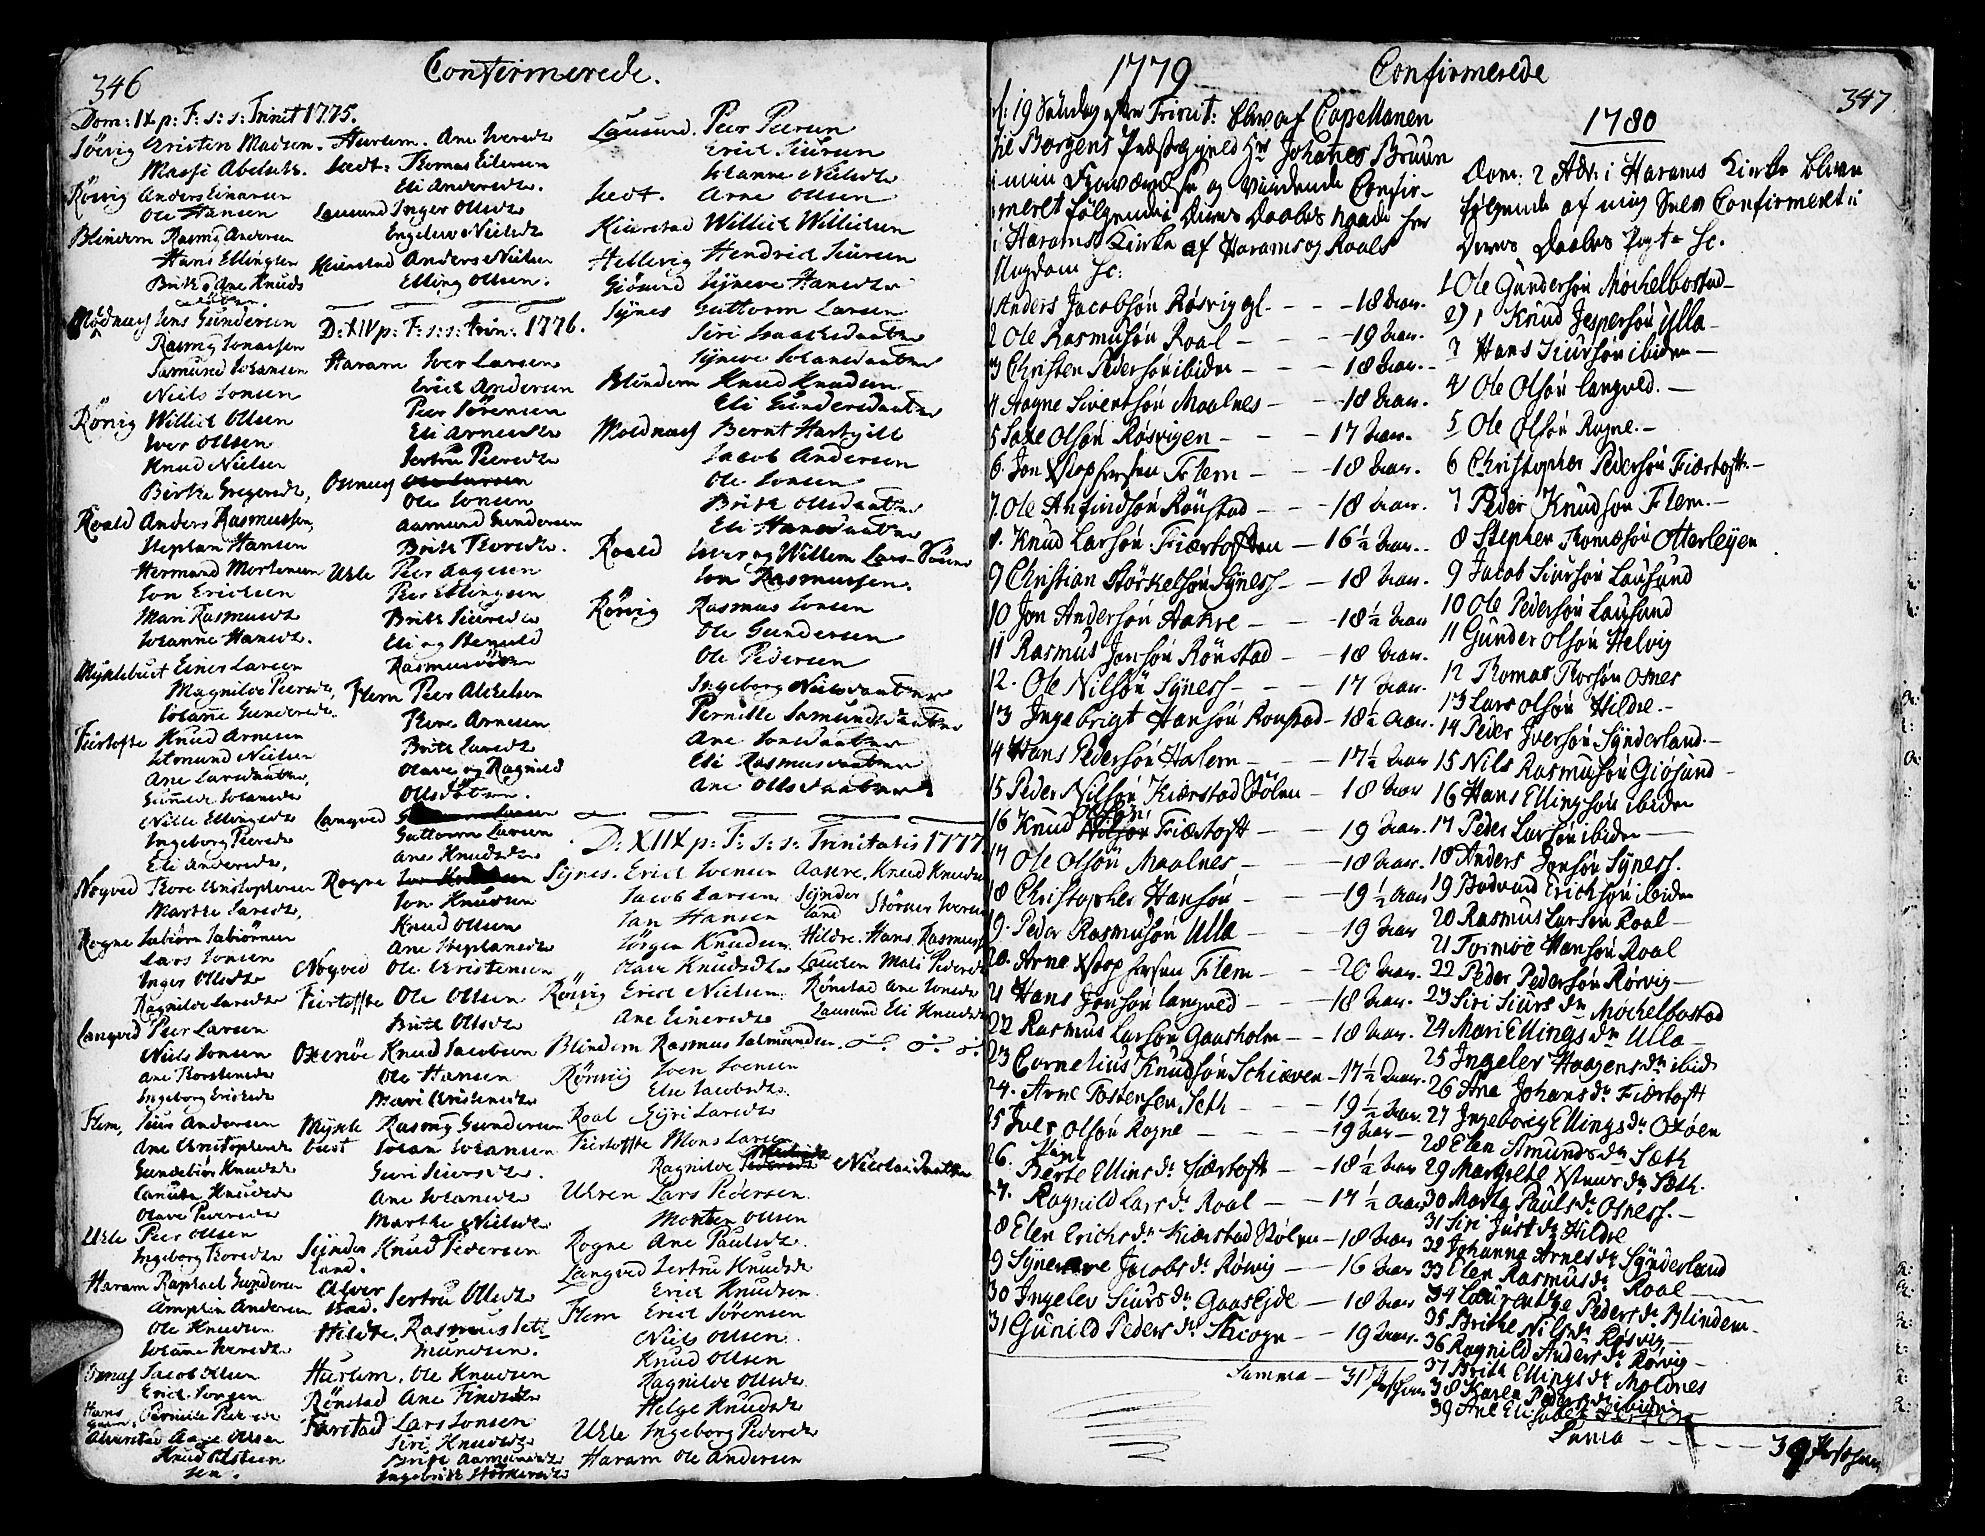 346
Confirmerede.
Dom: IX p: F: s: s: Trinit 1775.
Söevig Cristen Madsen.
Masse Abelsdt.
Rövig Anders Einarsen
Ole Hansen
Blindem Rasmg Andersen
Hans Ellingsen
Brit & Ane Knuds
Mödnæss Jens Gundersen
Rasmg Jonassen
Samund Johansen
Niels Jonsen
Rörvig Willich Olsen
Iver Olsen
Knud Nielsen
Birthe Gregersdt,
Roald Anders Rasmussen,
Stephan Hansen
Hermand Mortensen
Jon Erichsen
Mari Rasmusdt
Johanne Hansdt.
Myklebust Einer Larsen
Magnilde Peersdt,
Johanne Gundersdt.
Fiertofte Knud Arnesen
Aamund Nielsen
Ane Larsdaatter,
Gunilde Johansdt
Nille Ellingsdt
Ingeborg Peersdt
Eli Andersdt,
Nogved Tore Christophersen
Marthe Larsdt,
Rogne Sabiörn Sabiörnsen
Lars Jonsen
Inger Ollsdt
Ragnilde Larsdt
Langved Peer Larsen
Niels Jonsen
Ane Torstensdt
Ingeborg Erichsdt
Flem, Siur Andersen
Ane Christophersdt
Gundebiör Knudsdt
Canutte Knudsdt
Olave Peersdt
Uhle Peer Olsen
Ingeborg Toresdt
Haram Raphael Gundersen
Amphin Andersen
Ole Knudsen
Johanne Iversdt
Osnæss Jacob Olsen
Erich Jorgen
Pernille Peersdt
Alverstad Aage Olsen
Knud Pilsteen
sen.
Hurlem. Ane Iversdt
Sædt: Thomas Eilersen
Eli Andersdt.
Lausund Inger Ollsdt
Engelev Nielsdt
Kierstad Anders Nielsen
Elling Olsen.
D: XIV p: F: s: s: Trin: 1776.
Haram Iver Larsen
Erich Andersen
Peer Sörensen
Eli Arnesdt
Siertru Peersdt
Osnæss Ole Larsen
Ole Jonsen
Aamund Gundersen
Brite Toresdt.
Uhle Peer Aagesen
Peer Ellingsen
Brite Siursdt
Eli og Ragnild
Rasmusdötter
Flem Peer Alexelsen
Tore Arnesen
Brite Larsdt
Olave og Ragnild
Ollsdötter.
Langved
Guttorm Larsen
Ane Knudsdt
Rogne Jon Knudsen
Jon Knudsen
Knud Olsen
Ane Stephansdt
Nogved Ole Christensen
Fiertoffte Ole Olsen
Brite Ollsdt
Oxenöe Knud Jacobsen
Ole Hansen
Mari Christensdt
Mykle bust Rasmg Gundersen
Johan Johansen
Guri Siursdt.
Ane Johansdt
Marthe Nielsdt
Synder land. Knud Pedersen
Alver stad. Siertru Ollsdt
Hildre. Rasmus Sel-
mundsen.
Hurlem. Ole Knudsen
Rönstad Ane Findsdt
Farstad Lars Jonsen
Siri Knudsdt
Brite Aamundsdt
Ingebrit Störkersdt
Lausund. Peer Peersen
Erich Siursen
Johanne Nielsdt
Sædt. Arne Olsen
Kierstad Willich Willichsen
Hellevig Hendrich Siursen
Giösund Synneve Hansdt
Synes Guttorm Larsen
Siri Isaachsdaatter
Synneve Johansdaatter
Blindem Knud Knudsen
Eli Gundersdaatter
Moldnæss Bernt Hartvill
Jacob Andersen
Ole Jonsen
Brite Ollsdaatter
Eli Hansdaatter
Roald Iver og Willem Lars Sönner
Jon Rasmussen.
Rörvig Rasmus Jonsen
Ole Gundersen
Ole Pedersen
Ingeborg Nielsdaatter
Pernille Samundsdaatter
Ane Jonsdaatter
Eli Rasmusdaatter
Ane Ollsdaatter
D: XIIX p: F: s: s: Trinitatis 1777
Synes. Erich Ivensen
Jacob Larsen
Jan Hansen
Jörgen Knudsen
Olave Knudsdt
Rörvig Erich Nielsen.
Ane Einersdt
Blindem Rasmus Salmundsen
Rörviig Iven Ivensen
Else Jacobsdt
Roal Gyri Larsdt
Fiertoffte Mons Larsen
Ragnilde Nicolaidaatter
Uhren Lars Pedersen.
Morten Olsen
Rogne Ane Paulsdt.
Langved Siertru Knudsdt
Erich Knudsen
Flem Erich Sörensen
Niels Olsen
Knud Olsen
Ragnilde Ollsdt.
Helge Knudsdt
Uhle Ingeborg Pedersdt
Haram Ole Andersen
Aakre. Knud Knudsen
Synder land Störker Iversen
Hildre. Hans Rasmussen
Lausen Mali Pedersdt
Rönstad Ane Jonsdt
Lausund Eli Knudsdt
1779 Confirmerede
347
19 Söndag efter Trinit: blev af Capellanen
til Borgens Præstegield Hr Johannes Bruun
i min Fraværelse og Confir-
meret fölgende i deres Daabes Naade her
i Harams Kirke af Harams og Roals
Ungdom Sc:
1 Anders Jacobsön Rösvig gl. - - 18 Aar.
2 Ole Rasmusön Roal - - 19 Aar.
3 Christen Pedersön ibidm - - 18 Aar.
4 Aagne Sivertsön Maalnes - - 18 Aar.
5 Saxe Olsön Rösvigen - - 17 Aar.
6. Jon Xstophersen Flem - - 18 Aar.
7. Ole Anfindsön Rönstad - - 18 Aar.
8. Knud Larsön Fiærtoften - 16 ½ Aar.
9 Christian Störkelsön Syness - - 18 Aar.
10 Jon Andersön Aakre - - 18 ½ Aar
11 Rasmus Jonsön Rönstad - - 18 Aar.
12. Ole Nilsön Syness - - 17 Aar.
13 Ingebrigt Hansön Ronstad - 18 ½ Aar.
14 Hans Pedersön Halem - - 17 ½ Aar
15 Peder Nilsön Kiærstad Stölen - 18 Aar
16 Knud Olsön Nilsön Fiærtoft - - 19 Aar
17 Ole Olsön Maalnes - - 18 Aar.
18 Christopher Hansön - - 19 ½ Aar
19. Peder Rasmusön Ulla - - 19 Aar
20. Arne Xstophersen Flem - - 20 Aar.
21 Hans Jonsön Langved - - 18 Aar.
22 Rasmus Larsön Gaasholm - - 18 Aar.
23 Cornelius Knudsön Schieven - 17 ½ Aar.
24. Arne Tostensen Seth - - 19 ½ Aar.
25 Iver Olsön Rogne - - 19 Aar
26. Berte Ellins dr Fiærtoft - - 18 ½ Aar
27. Ragnild Lars dr Roal - - 17 ½ Aar
28 Elen Erichs dr Kiærstad Stölen - 18 Aar
29 Syneve Jacobs dr Rövig - - 16 Aar
30 Ingelev Siurs dr Gaas Ejde - 18 Aar
31 Gunild Peders dr Skiogn - - 19 Aar.
Summa - 31 Persohner
1780
Dom: 2 Adv: i Harams Kirke bleven
fölgende af mig Selv Confirmeret i
Deres Daabes Pagt Sc.
1 Ole Gundersön Möchelbostad
2 Knud Jespersön Ulla
3 Hans Siursön ibidm
4 Ole Olsön Langved.
5 Ole Olsön Rogne.
6 Christopher Pedersön Fiærtoft.
7 Peder Knudsön Flem.
8 Stephen Thomæsön Otterleyen
9 Jacob Siursön Lausund
10 Ole Pedersön Lausund
11 Gunder Olsön Helvig
12 Thomas Thorsön Osnes
13 Lars Olsön Hildre.
14 Peder Iversön Synderland.
15 Nils Rasmusön Giösund
16 Hans Ellingsön ibidm
17 Peder Larsön ibidm
18 Anders Jonsön Syness.
19 Erichsön ibidm
20 Rasmus Larsen Roal
21 Tormoe Hansön Roal
22 Peder Pedersön Rörvig
23 Siri Siurs dr Möchelbostad
24 Mari Ellings dr Ulla
25 Ingelev Haagens dr ibid
26 Ane Johans dr Fiærtoft
27 Ingeborig Ellings dr Oxöen
28 Elen Amunds dr Sæth
29 Margrete Xstens dr Sæth.
30 Maria Pauls dr Osness.
31 Siri Just dr Hildre
32 Johanna Arnes dr Synderland
33 Elen Rasmus dr Roal
34 Laurentze Peders dr Blindem
35 Brithe Nils dr Rösvig
36 Ragnild Anders dr Rörvig
37 Brith Ellings dr Moldnes
38 Karen Peders dr ibidm
39 Ane Elisabet
Suma - - - 39 Personer